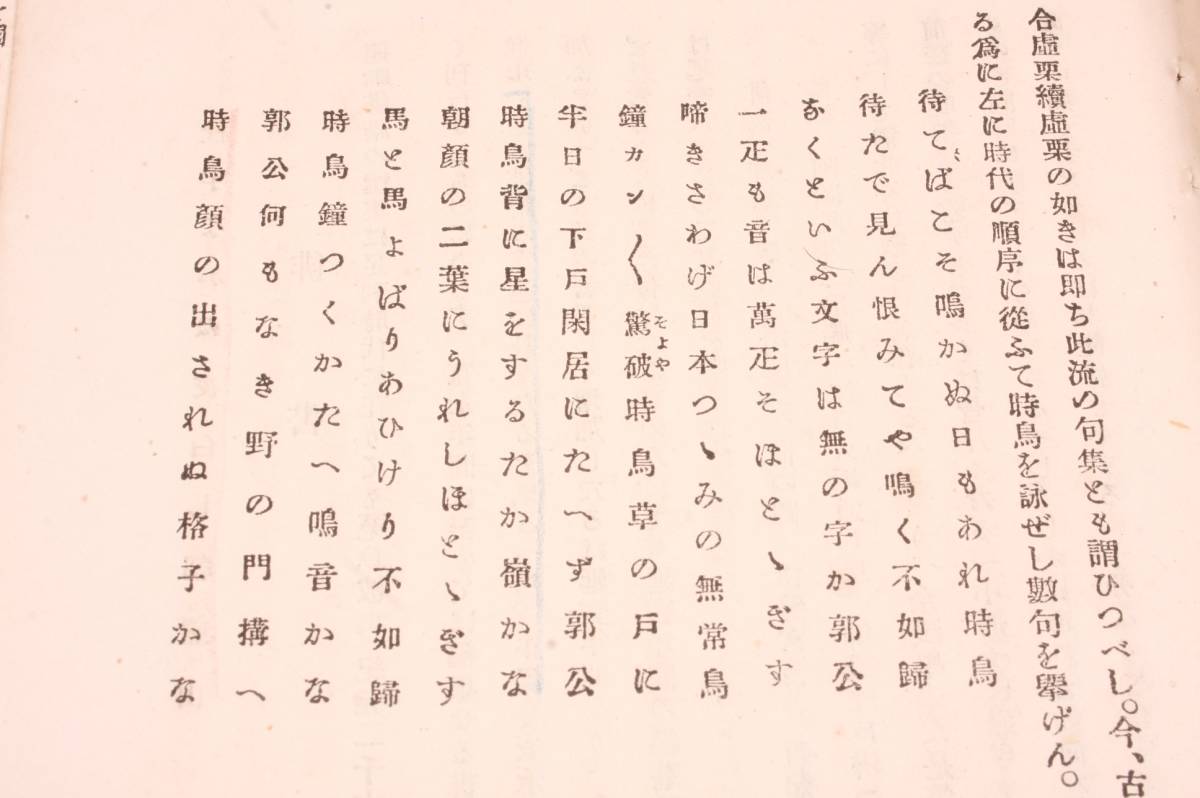 合虛栗續虛栗の如きは卽ち此流の句集とも謂ひつべし。今、古
る爲に左に時代の順序に從ふて時鳥を詠ぜし數句を擧げん。
待てばこそ鳴かぬ日もあれ時鳥
待たで見ん恨みてや鳴く不如歸
なくといふ文字は無の字か郭公
一疋も音は萬疋そほとゝぎす
啼きさわげ日本つゝみの無常鳥
鐘カン〱驚破時鳥草の戸に
そよや
半日の下戸閑居にたへず郭公
時鳥背に星をするたか嶺かな
朝顏の二葉にうれしほとゝぎす
馬と馬よばりあひけり不如歸
時鳥鐘つくかたへ鳴音かな
郭公何もなき野の門搆へ
時鳥顏の出されぬ格子かな